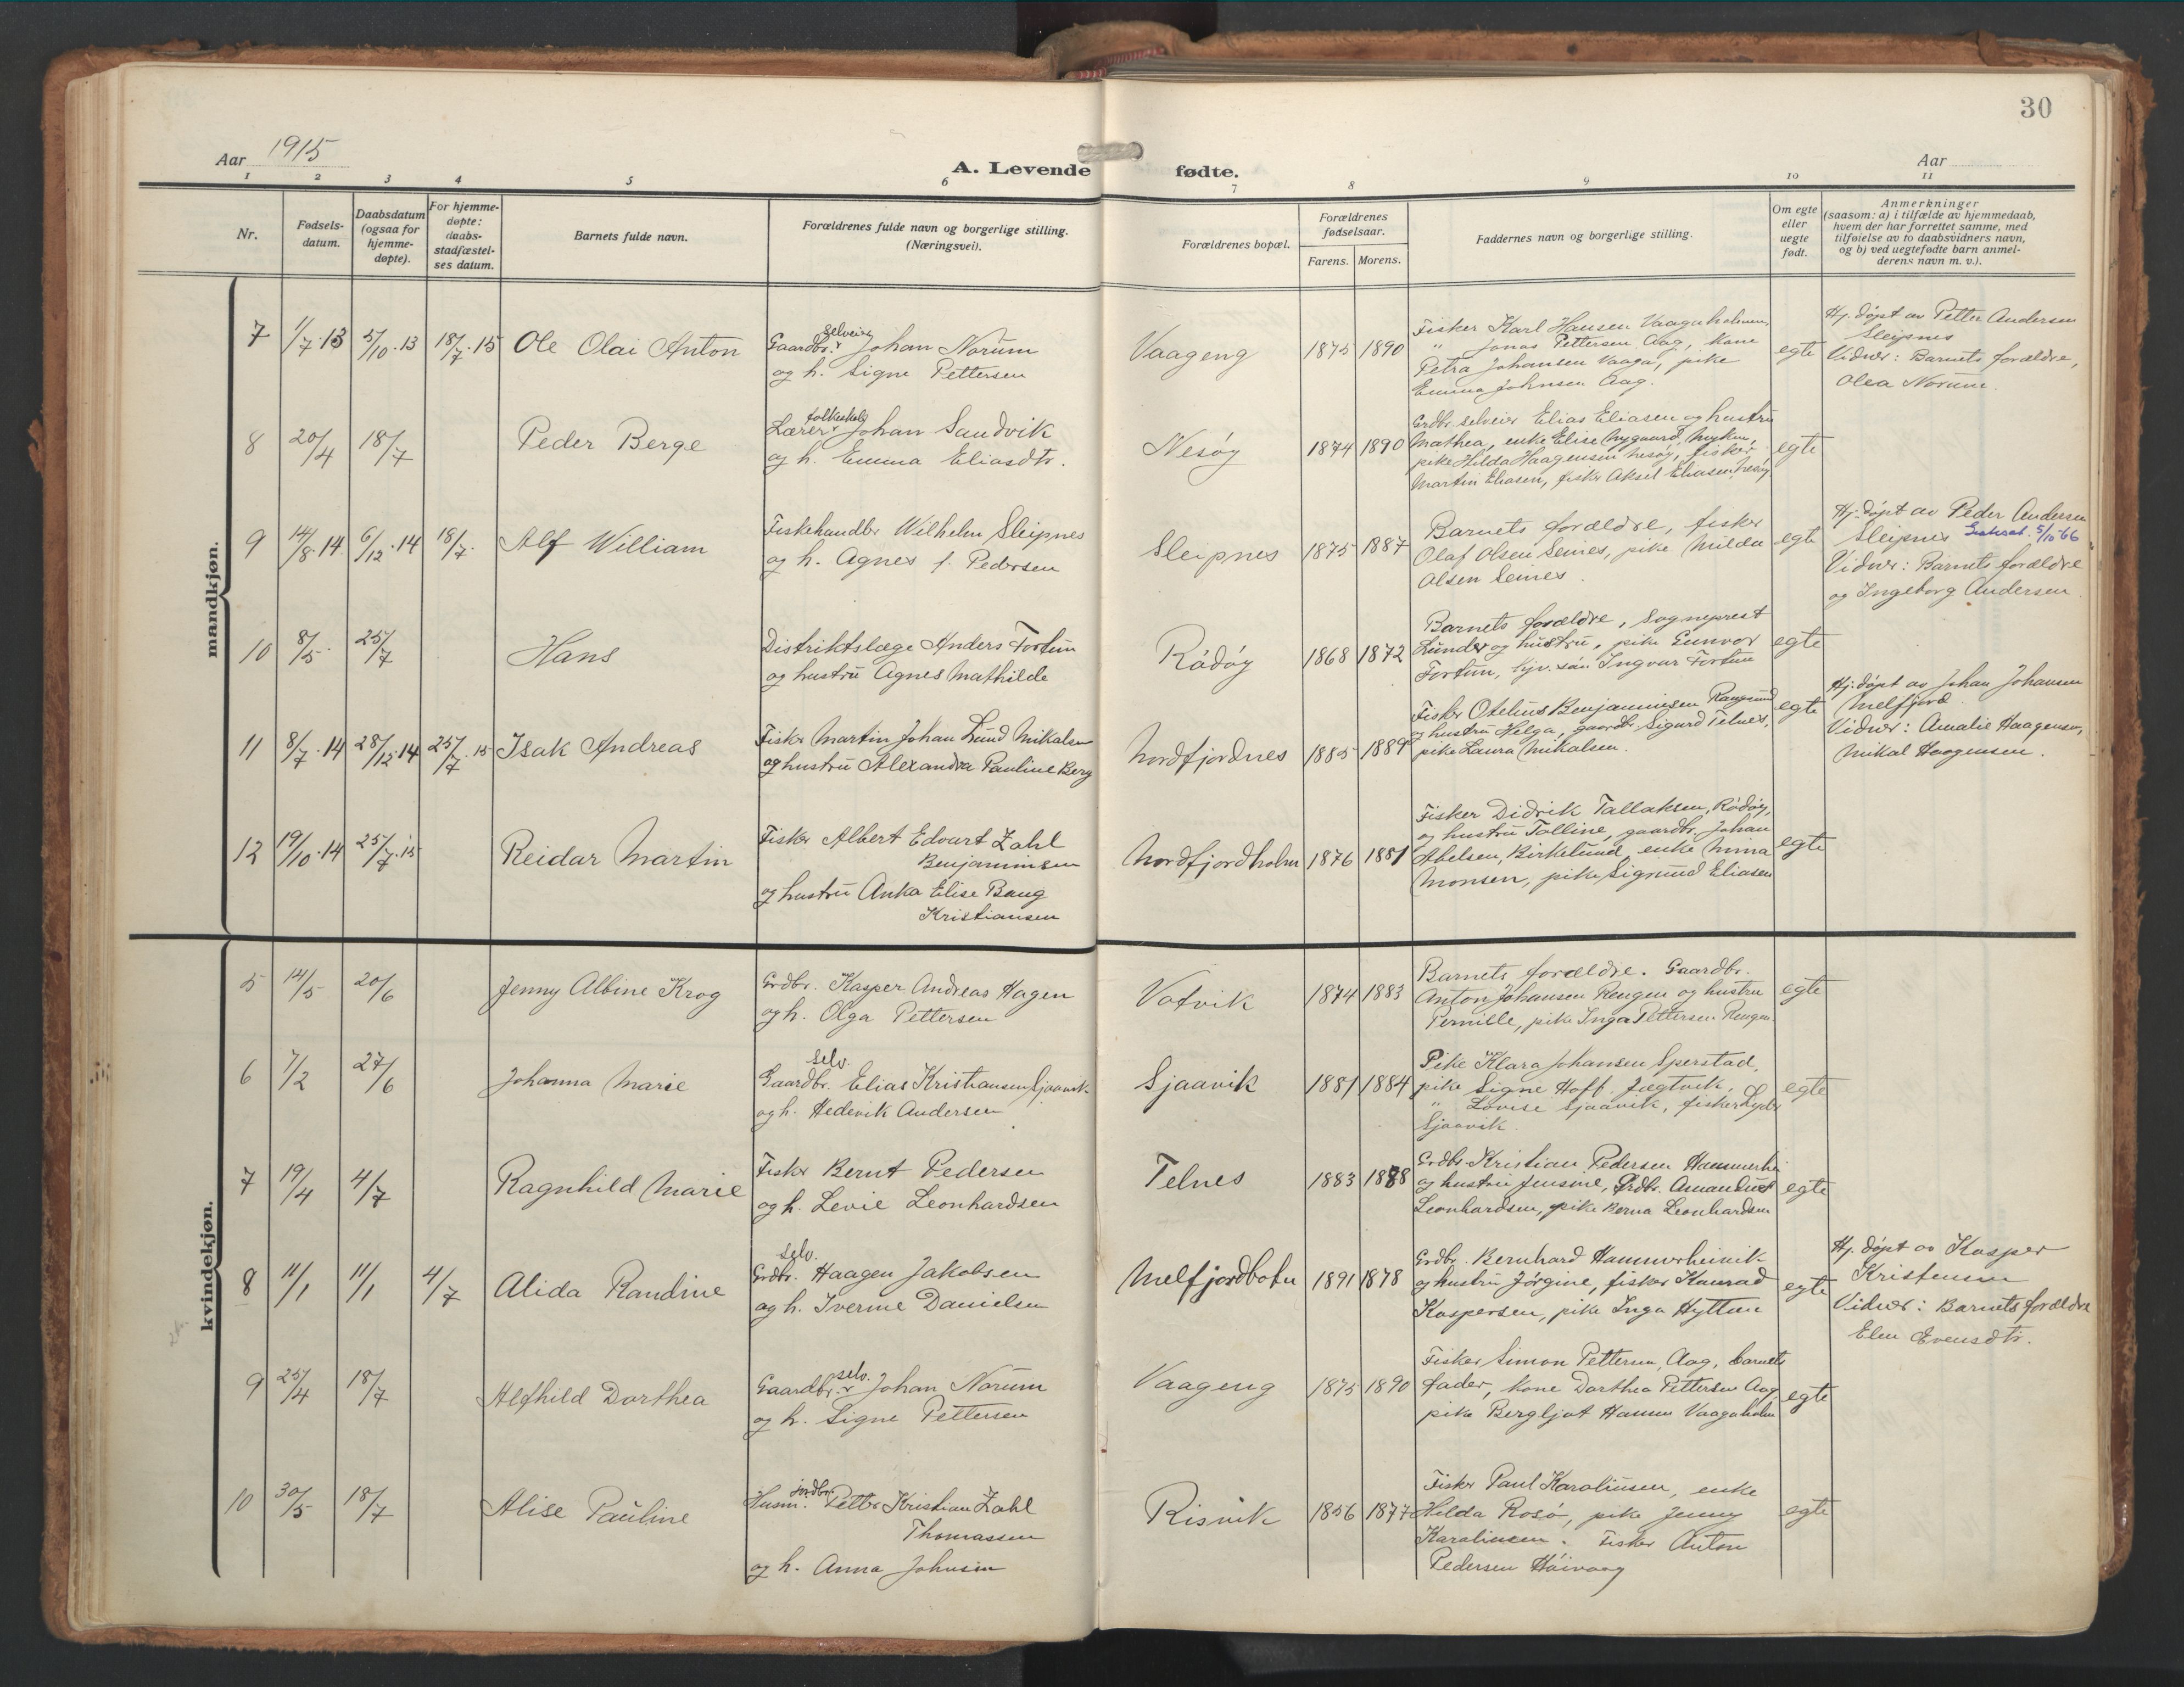 30
Aar 1915
A. Levende fødte.
Aar
1 2 3 4 5 6 7 8 9 10 11
Nr.
Fødsels-
datum.
Daabsdatum
(ogsaa for
hjemme-
døpte).
For hjemme-
døpte:
daabs-
stadfæstel-
ses datum.
Barnets fulde navn.
Forældrenes fulde navn og borgerlige stilling.
(Næringsvei).
Forældrenes bopæl.
Forældrenes
fødselsaar.
Farens. Morens.
Faddernes navn og borgerlige stilling.
Om egte
eller
uegte
født.
Anmerkninger
(saasom: a) i tilfælde av hjemmedaab,
hvem der har forrettet samme, med
tilføielse av to daabsvidners navn,
og b) ved uegtefødte barn anmel-
derens navn m. v.).
mandkjøn.
7 1/7·13 5/10·13 18/7·15 Ole Olai Anton
selveier
Gaardbr. Johan Norum
og h. Signe Pettersen
Vaageng 1875 1890
Fisker Karl Hansen Vaagaholmen,
" Jonas Pettersen Aag, kone
Petra Johansen Vaaga, pike
Emma Johnsen Aag.
egte
Hj. døpt av Petter Andersen
Sleipnes
Vidner: Barnets forældre,
Olea Norum.
8 20/4 18/7 Peder Berge
folkeskole
Lærer Johan Sandvik
og h. Emma Eliasdtr.
Nesøy 1874 1890
Grdbr. selveier Elias Eliasen og hustru
Mathea, enke Elise Nygaard, Myken,
pike Hilda Haagensen Nesøy, fisker
Martin Eliasen, fisker Aksel Eliasen, Nesøy
egte
9 14/8·14 6/12·14 18/7· Alf William
Fiskehandler Wilhelm Sleipnes
og h. Agnes f. Pedersen
Sleipnes 1875 1887
Barnets forældre, fisker
Olaf Olsen Seines, pike Milda
Olsen Seines.
egte
Hj. døpt av Peder Andersen
Sleipnes 5/10-66
Vidner: Barnets forældre
og Ingeborg Andersen.
10 8/5· 25/7 Hans
Distriktslæge Anders Fortun
og hustru Agnes Mathilde
Rødøy 1868 1872
Barnets forældre, Sogneprest
Lunder og hustru, pike Gunvor
Fortun, Ingvar Fortun
egte
11 8/7·14 28/12·14 25/7·15 Isak Andreas
Fisker Martin Johan Lund Mikalsen
og hustru Alexandra Pauline Berg
Nordfjordnes 1885 1889
Fisker Otelius Benjaminsen Rangsund
og hustru Helga, gaardbr. Sigurd Telnes,
pike Laura Mikalsen.
egte
Hj. døpt av Johan Johansen
Melfjord
Vidner: Amalie Haagensen,
Mikal Haagensen.
12 19/10·14 25/7·15 Reidar Martin
Fisker Albert Edvart Zahl
Benjaminsen
og hustru Anka Elise Bang
Kristiansen
Nordfjordholm 1876 1881
Fisker Didrik Tallaksen, Rødøy,
og hustru Talline, gaardbr. Johan
Abelsen, Birkelund, enke Mina
Monsen, pike Sigrund Eliasen
egte
kvindekjøn.
5 14/5 20/6 Jenny Albine Krog
Grdbr. Kasper Andreas Hagen
og h. Olga Pettersen
Vatvik 1874 1883
Barnets forældre. Gaardbr.
Anton Johansen Rengen og hustru
Pernille, pike Inga Pettersen Rengen.
egte
6 7/2 27/6 Johanna Marie
selv.
Gaardbr. Elias Kristiansen Sjaavik
og h. Hedevik Andersen
Sjaavik 1881 1884
Pike Klara Johansen Sperstad,
pike Signe Hoff, Jægtvik,
" Lovise Sjaavik, fisker Lyder
Sjaavik.
egte
7 19/4 4/7 Ragnhild Marie
Fisker Bernt Pedersen
og h. Levie Leonhardsen
Telnes 1883 1888
Grdbr. Kristian Pedersen
og hustru Jensine, Grdbr. Amandus
Leonhardsen, pike Berna Leonhardsen
egte
8 11/1 11/1 4/7 Alida Randine
selv.
Grdbr. Haagen Jakobsen
og h. Iverine Danielsen
Melfjordbotn 1891 1878
Grdbr. Bernhard Hammerheimvik
og hustru Jørgine, fisker Konrad
Kaspersen, pike Inga Hytten
egte
Hj. døpt av Kasper
Kristensen
Vidner: Barnets forældre
Elen Evensdtr.
9 25/4 18/7 Alfhild Dorthea
selv.
Gaardbr. Johan Norum
og h. Signe Pettersen
Vaageng 1875 1890
Fisker Simon Pettersen, Aag, barnets
fader, kone Dorthea Pettersen Aag,
pike Bergljot Hansen Vaagaholm
egte
10 30/5 18/7 Alise Pauline
jordbr.
Husm. Petter Kristian Zahl
Thomassen
og h. Anna Johnsen
Risvik 1856 1877
Fisker Paul Karoliussen, enke
Hilda Rosø, pike Jenny
Karoliussen. Fisker Anton
Pedersen Høivaag
egte